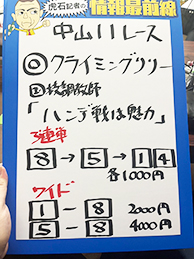 虎石記者の
情報最前線
中山11レース
◎クライミングリリー
国枝調教師
「ハンデ戦は魅力」
3連単
8→5→14
各1000円
ワイド
1-8 2000円
5-8 4000円